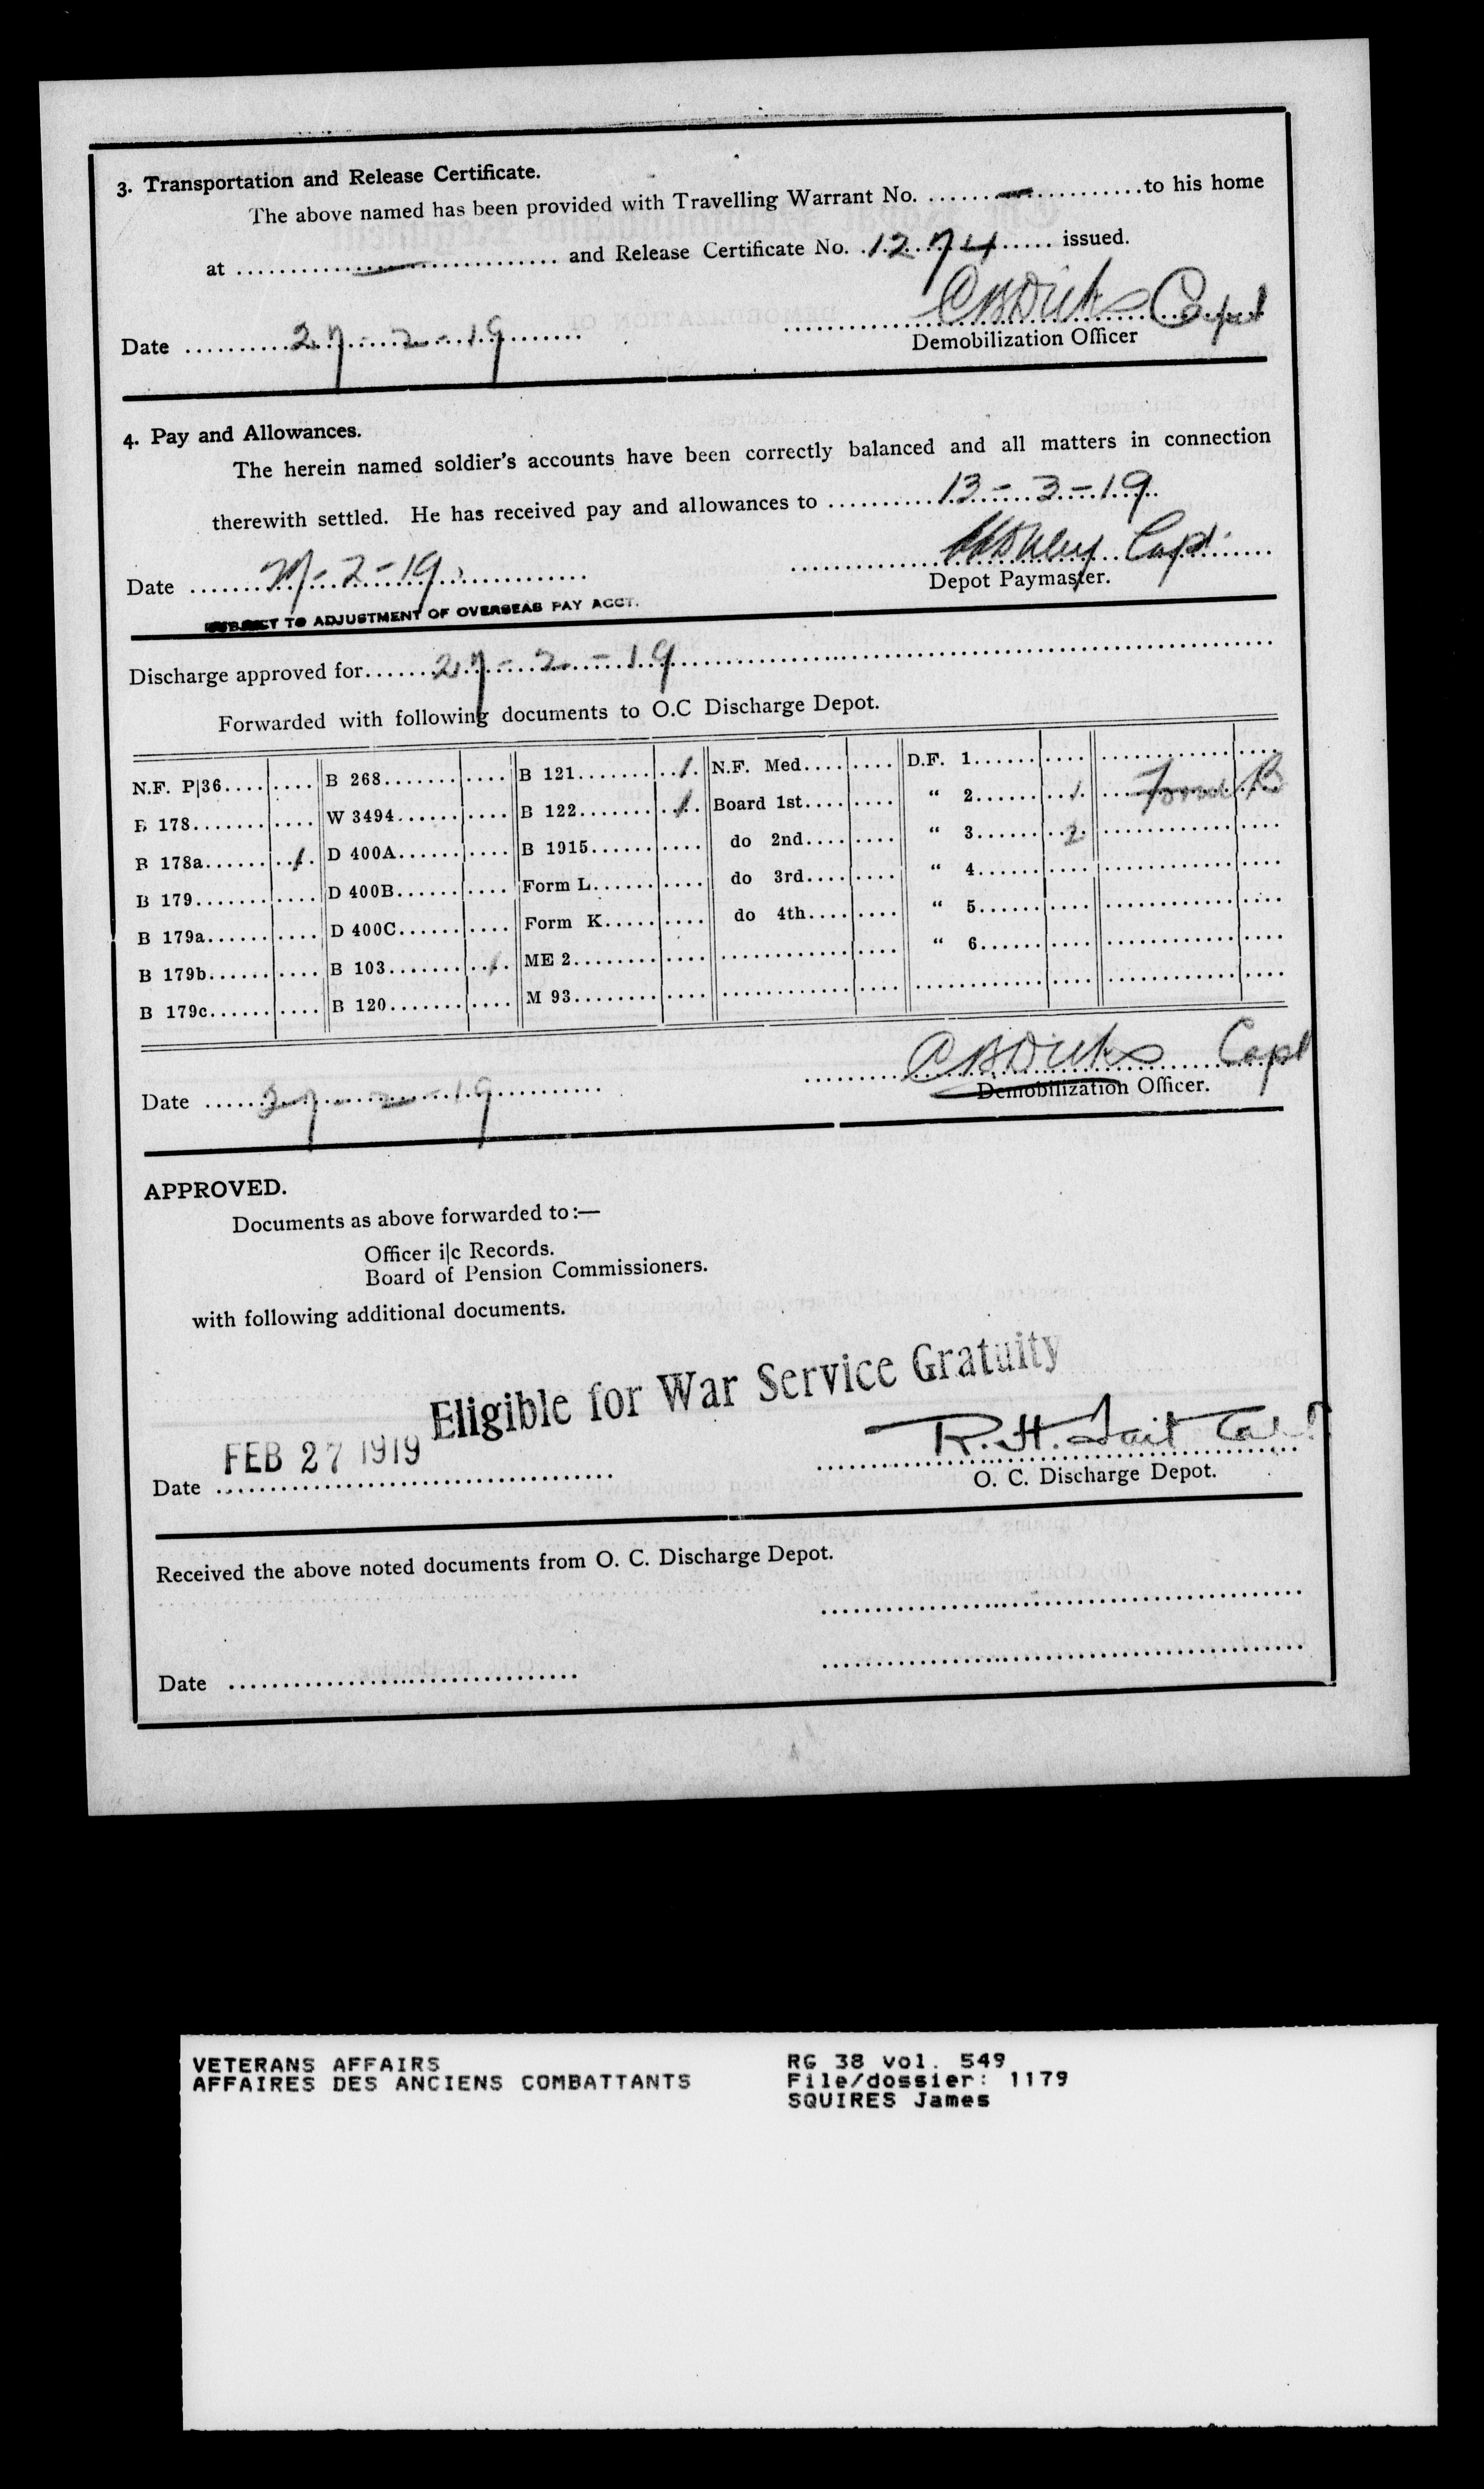 3. Transportation and Release Certificate.
The above named has been provided with Travelling Warrant No. ........—............to his home
at ................—................ and Release Certificate No. 1274 issued.
C B Dicks Capt
Date 27-2-19 Demobilization Officer
4. Pay and Allowances.
The herein named soldier's accounts have been correctly balanced and all matters in connection
therewith settled. He has received pay and allowances to 13-3-19
Capt.
Date 27-2-19 Depot Paymaster.
SUBJECT TO ADJUSTMENT OF OVERSEAS PAY ACCT.
Discharge approved for 27-2-19
Forwarded with following documents to O.C Discharge Depot.
N.F. P|36 B 268 B 121 1 N.F. Med D.F. 1
B 178 W 3494 B 122 1 Board 1st " 2 1 Form B
B 178a 1 D 400A B 1915 do 2nd " 3 2
B 179 D 400B Form L do 3rd " 4
B 179a D 400C Form K do 4th " 5
B 179b B 103 1 ME 2 " 6
B 179c B 120 M 93
C B Dicks Capt
Date 27-2-19 Demobilization Officer.
APPROVED.
Documents as above forwarded to:—
Officer i|c Records.
Board of Pension Commissioners.
with following additional documents.
Eligible for War Service Gratuity
R. H. Tait Capt
Date FEB 27 1919 O. C. Discharge Depot.
Received the above noted documents from O. C. Discharge Depot.
Date
VETERANS AFFAIRS RG 38 vol. 549
AFFAIRES DES ANCIENS COMBATTANTS File/dossier: 1179
SQUIRES James